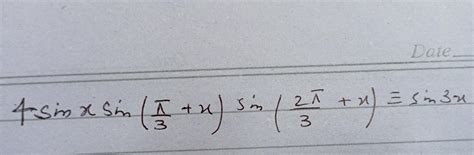 Date
4 sin x sin (π/3 + x) sin (2π/3 + x) ≡ sin 3x